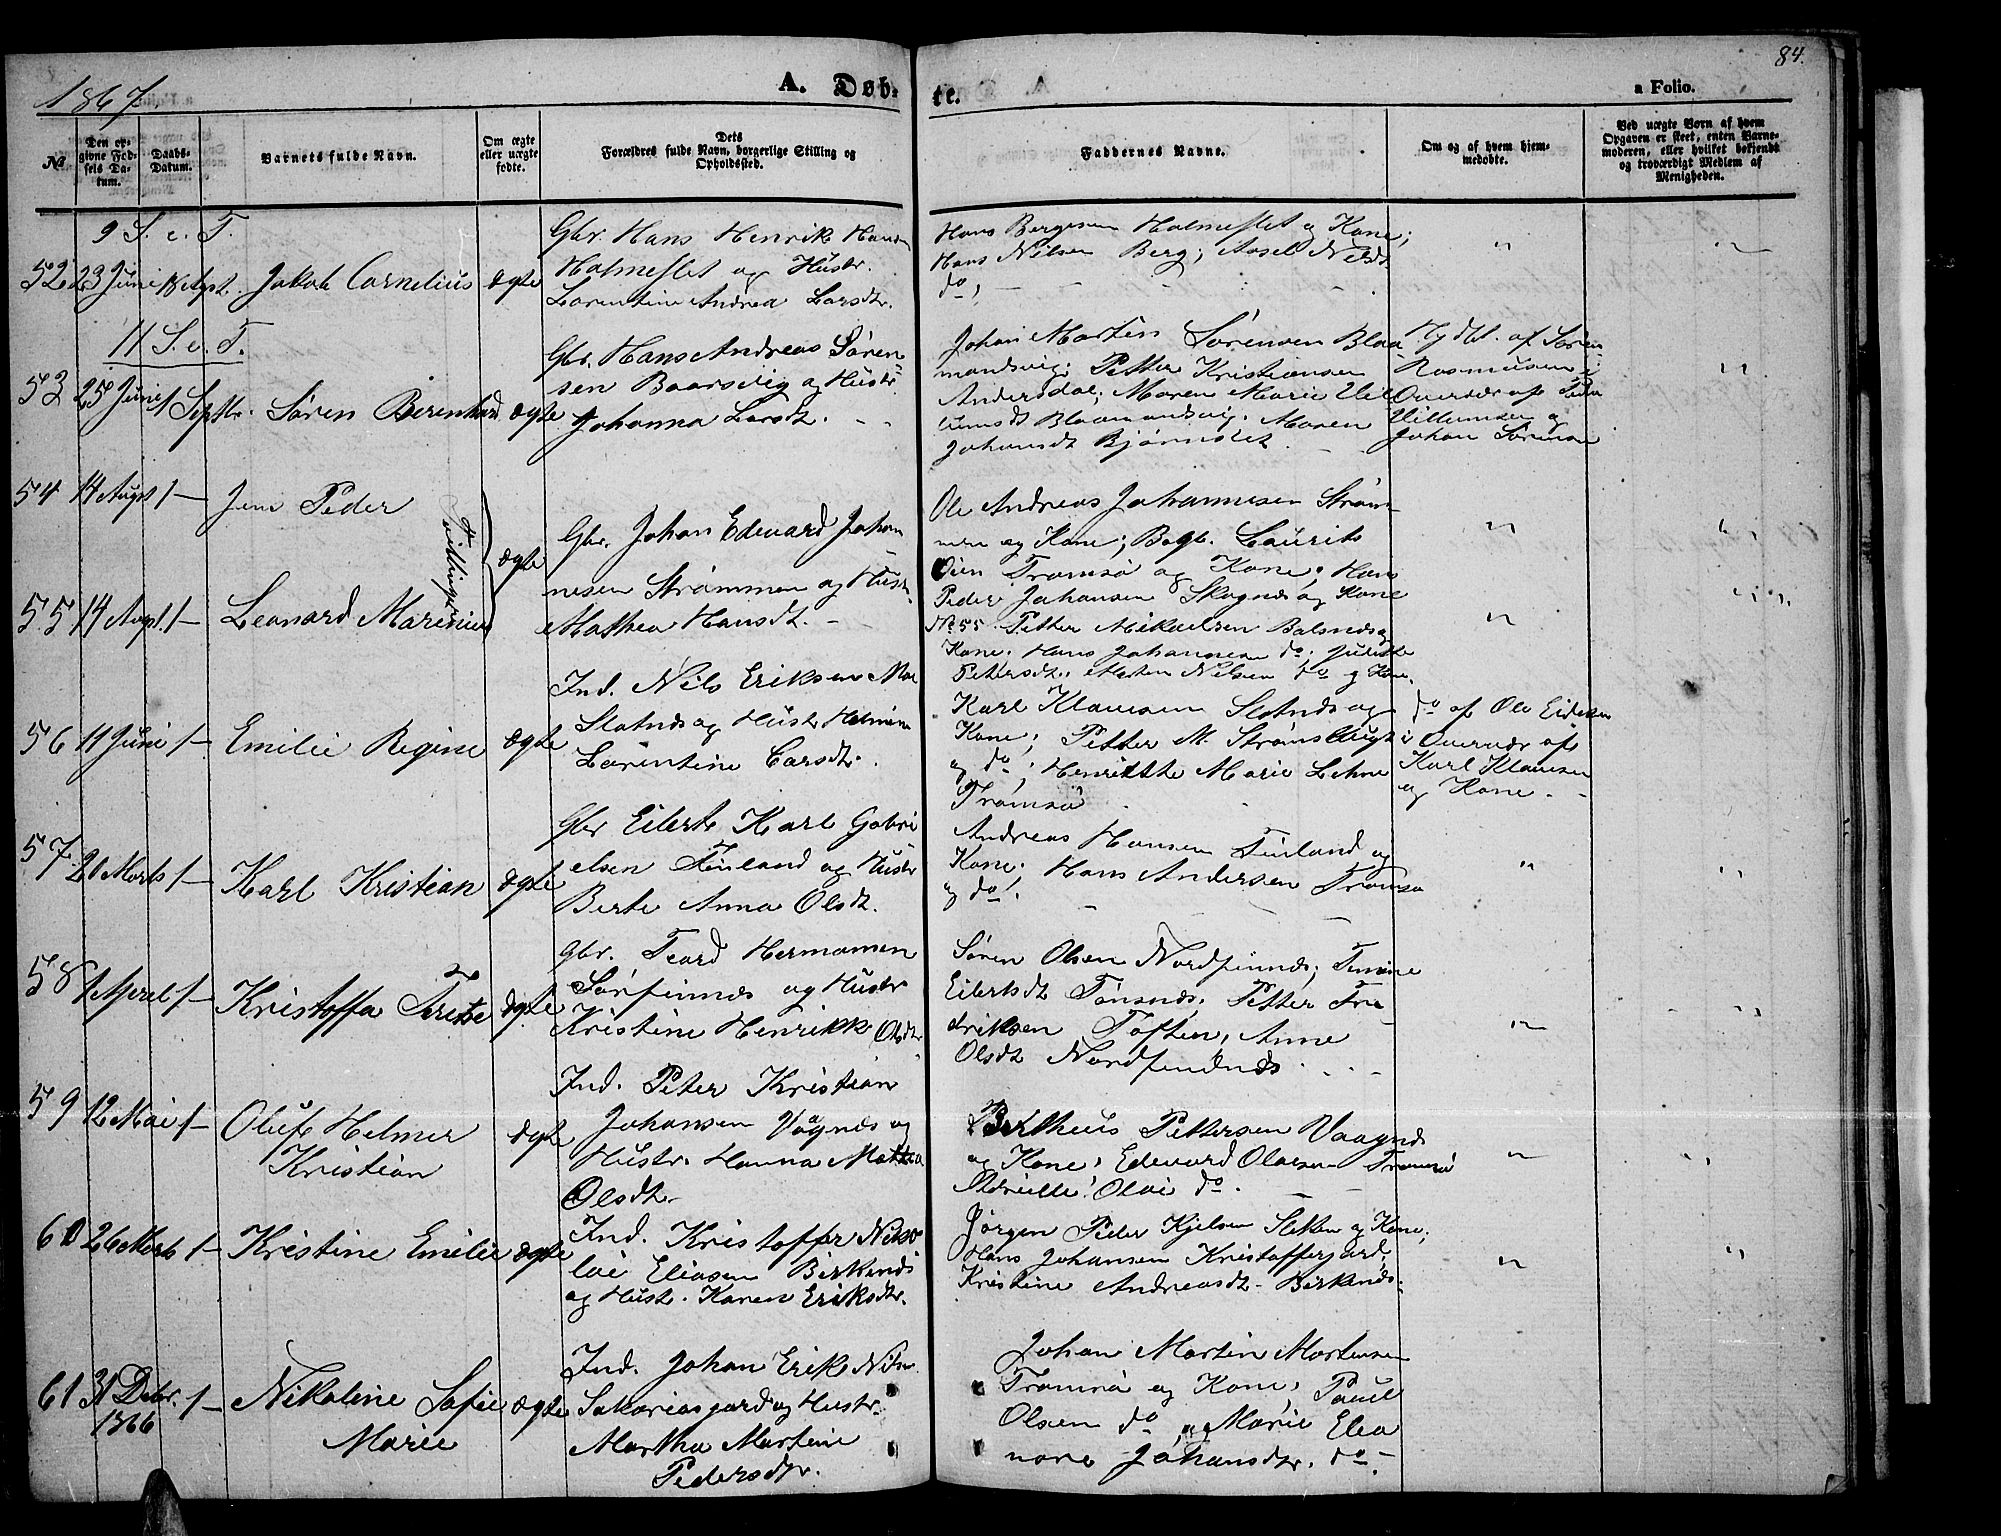 1867.
A. Døb-
te.
a Folio.
84.
№
Den op-
givne Fød-
sels Da-
tum.
Daabs-
Datum.
Barnets fulde Navn.
Om ægte
eller uægte
fødte.
Dets
Forældres fulde Navn, borgerlige Stilling og
Opholdssted.
Faddernes Navne.
Om og af hvem hjem-
medøbte.
Ved uægte Børn af hvem
Opgaven er skeet, enten Barne-
moderen, eller hvilket bekjendt
og troværdigt Medlem af
Menigheden.
9 S. e. T.
52 23 Juni 18 Agst. Jakob Cornelius ægte
Gbr. Hans Henrik Hansen
Holmeslet og Hustr.
Lorentine Andrea Larsdtr.
Hans Bergesen Holmeslet og Kone;
Hans Nilsen Berg; Assel Nilsdt
do;
11 S. e. T.
53 25 Juni 1 Septbr. Søren Berenhard ægte
Gbr. Hans Andreas Søren
sen Baarsvig og Hustr
Johanna Larsdt.
Johan Martin Sørensen Blaa
mandsvig; Petter Kristiansen
Andersdal; Maren Marie Vil
lumsdt Blaamandsvig. Maren
Johansdt Bjørnslet
Hjdbt. af Søren
Rasmusen i
Overvær af Peder
Villumsen og
Johan Sørensen
54 14 Augst 1 — Jens Peder
Tvillinger
ægte
Gbr. Johan Edevard Johan
nesen Strømmen og Hust.
Mathea Hansdt.
Ole Andreas Johannesen Strøm
men og Kone; Bagb. Laurits
Oien Tromsø og Kone; Hans
Peder Johansen Skognæs og Kone
55 14 Augst. 1 — Leonard Marenius
№ 55. Petter Mikaelsen Balsnæs og
Kone. Hans Johannesen do. Julitte
Petersdt. Morten Nilsen do og Kone.
56 11 Juni 1 — Emilie Regine ægte
Ind. Nils Eriksen Mae
Slotnæs og Hustr Helmine
Lorentine Larsdtr.
Karl Klausen Slotnæs og
Kone; Petter M. Strømslugt
og do; Henriette Marie Lehne
Tromsø
do af Ole Eideksen
i Overvær af
Karl Klausen
og Kone.
57 20 Marts 1 — Karl Kristian ægte
Gbr Eilert Karl Gabri
elsen Finland og Hustr
Berte Anna Olsdt.
Andreas Hansen Finland og
Kone; Hans Andersen Tromsø
og do.
58 1 April 1 — Kristoffa ægte
Gbr. Teard Hermansen
Sørfinnæs og Hustr
Kristine Henrikke Olsdt
Søren Olsen Nordfinnæs;
Eilertsdt Tønsnæs; Petter Fre
driksen Toften; Anne
Olsdt Nordfinnæs
59 12 Mai 1 — Oluf Helmer
Kristian
ægte
Ind. Peter Kristian
Johansen Vagnæs og
Hustr. Hanna Mattea
Olsdt
Bertheus Pettersen Vaagnæs
og Kone; Edevard Olavsen Tromsø
Olai do.
60 26 Marts 1 — Kristine Emilie ægte
Ind. Kristoffer Niko
lai Eliasen Birkenæs
og Hust. Karen Eriksdtr.
Jørgen Peder Kjelsen Sletten og Kone;
Hans Johansen Kristoffergard;
Kristine Andreasdt. Birknæs
61 31 Debr.
1866
1 — Nikoline Sofie
Marie
ægte
Ind. Johan Erik Nilsen
Sakariasgard og Hustr
Martha Martine
Pedersdtr.
Johan Martin Mortensen
Tromsø og Kone; Paul
Olsen do og Marie Elea
nore Johansdtr. do.